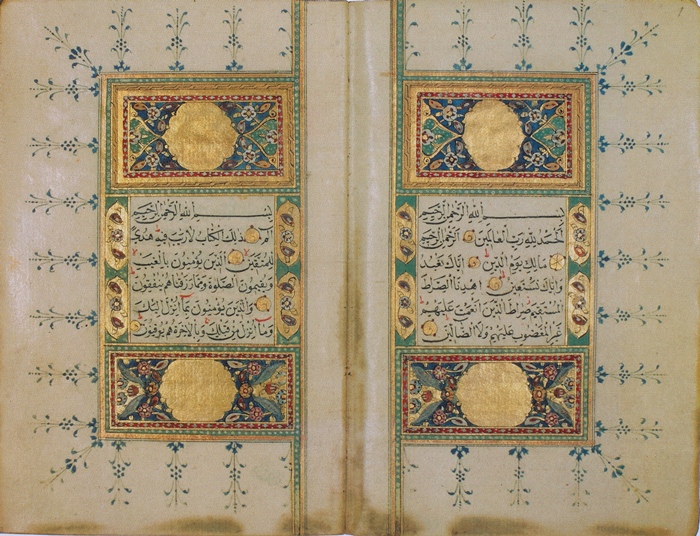 بسم الله الرحمن الرحيم
الحمد لله رب العالمين الرحمن الرحيم
مالك يوم الدين اياك نعبد
واياك نستعين اهدنا الصراط
المستقيم صراط الذين انعمت عليهم
غير المغضوب عليهم ولا الضالين
بسم الله الرحمن الرحيم
الم ذلك الكتاب لا ريب فيه هدى
للمتقين الذين يؤمنون بالغيب
ويقيمون الصلوة ومما رزقناهم ينفقون
والذين يؤمنون بما انزل اليك
وما انزل من قبلك وبالآخرة هم يوقنون